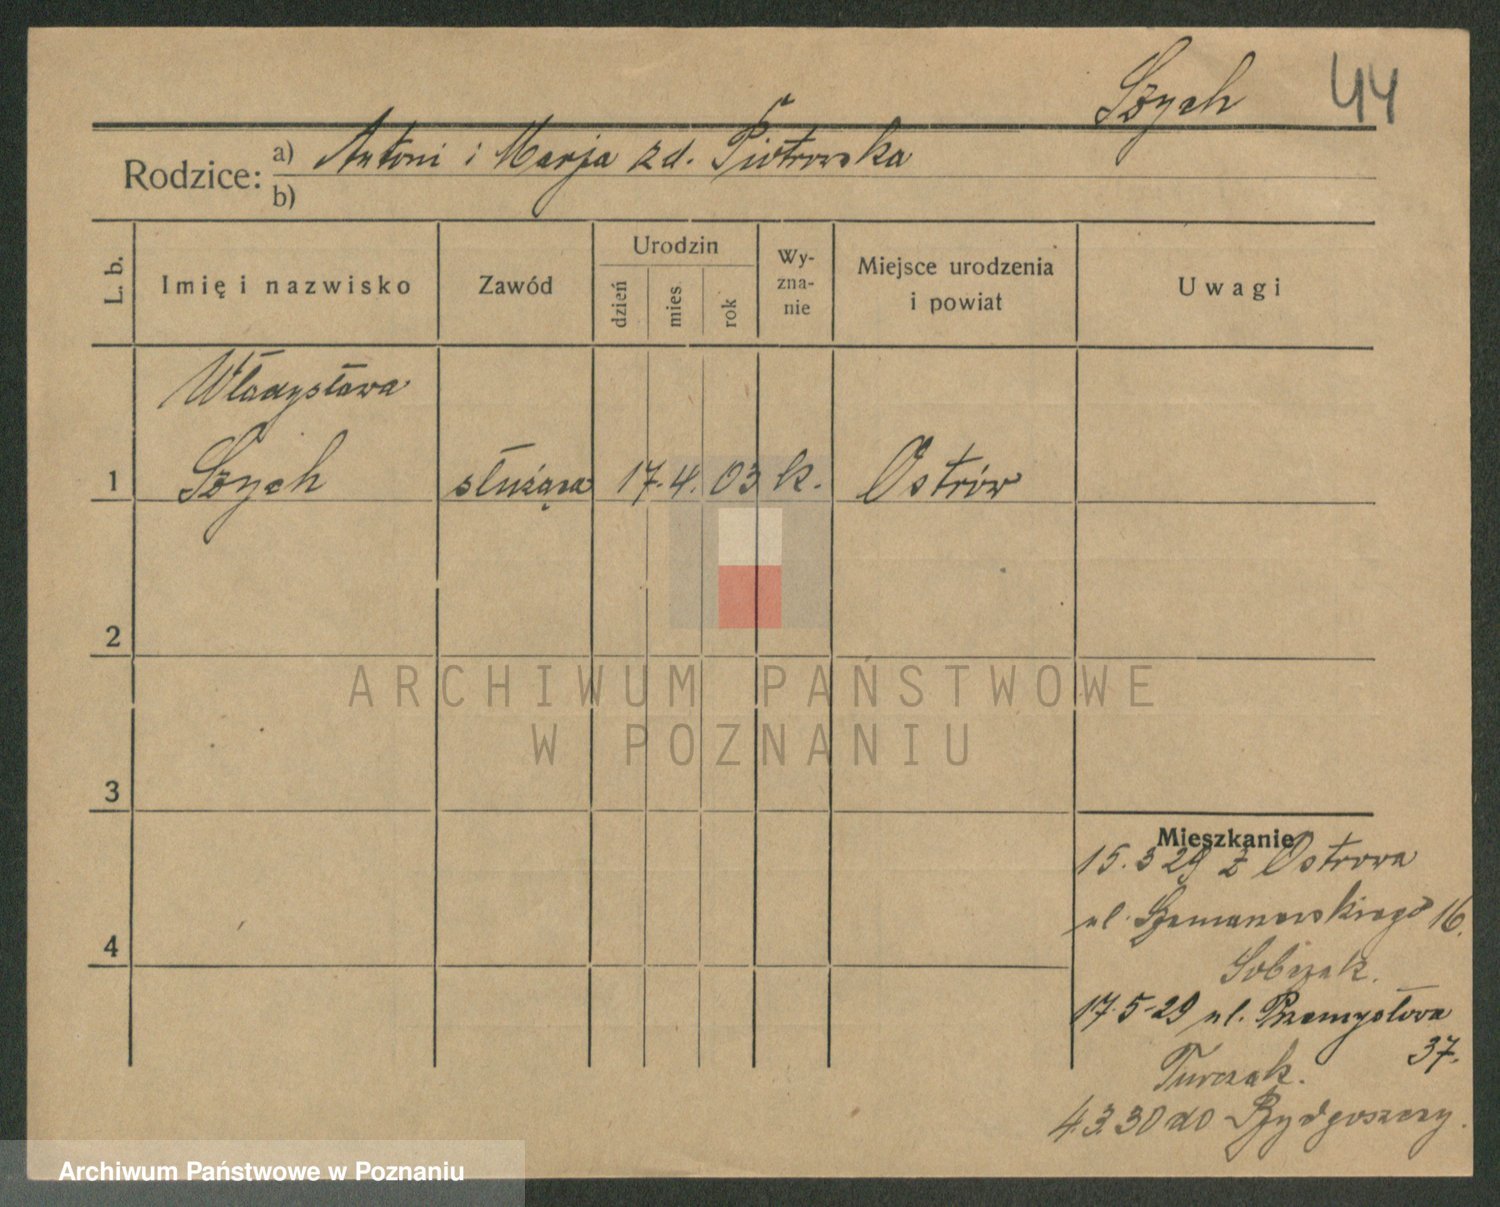 Szych 44
Rodzice: a) Antoni i Marja zd. Piotrowska
b)
L. b. Imię i nazwisko Zawód Urodzin dzień mies rok Wy-zna-nie Miejsce urodzenia i powiat Uwagi
Władysława
1 Szych służąca 17. 4. 03 k. Ostrów
2
ARCHIWUM PAŃSTWOWE
W POZNANIU
3
Mieszkanie
15.3 29 z Ostrowa
4
ul. 16.
Sobczak.
17.5-29 ul. Przemysłowa
37.
Turczak.
4.3.30 do Bydgoszczy.
Archiwum Państwowe w Poznaniu